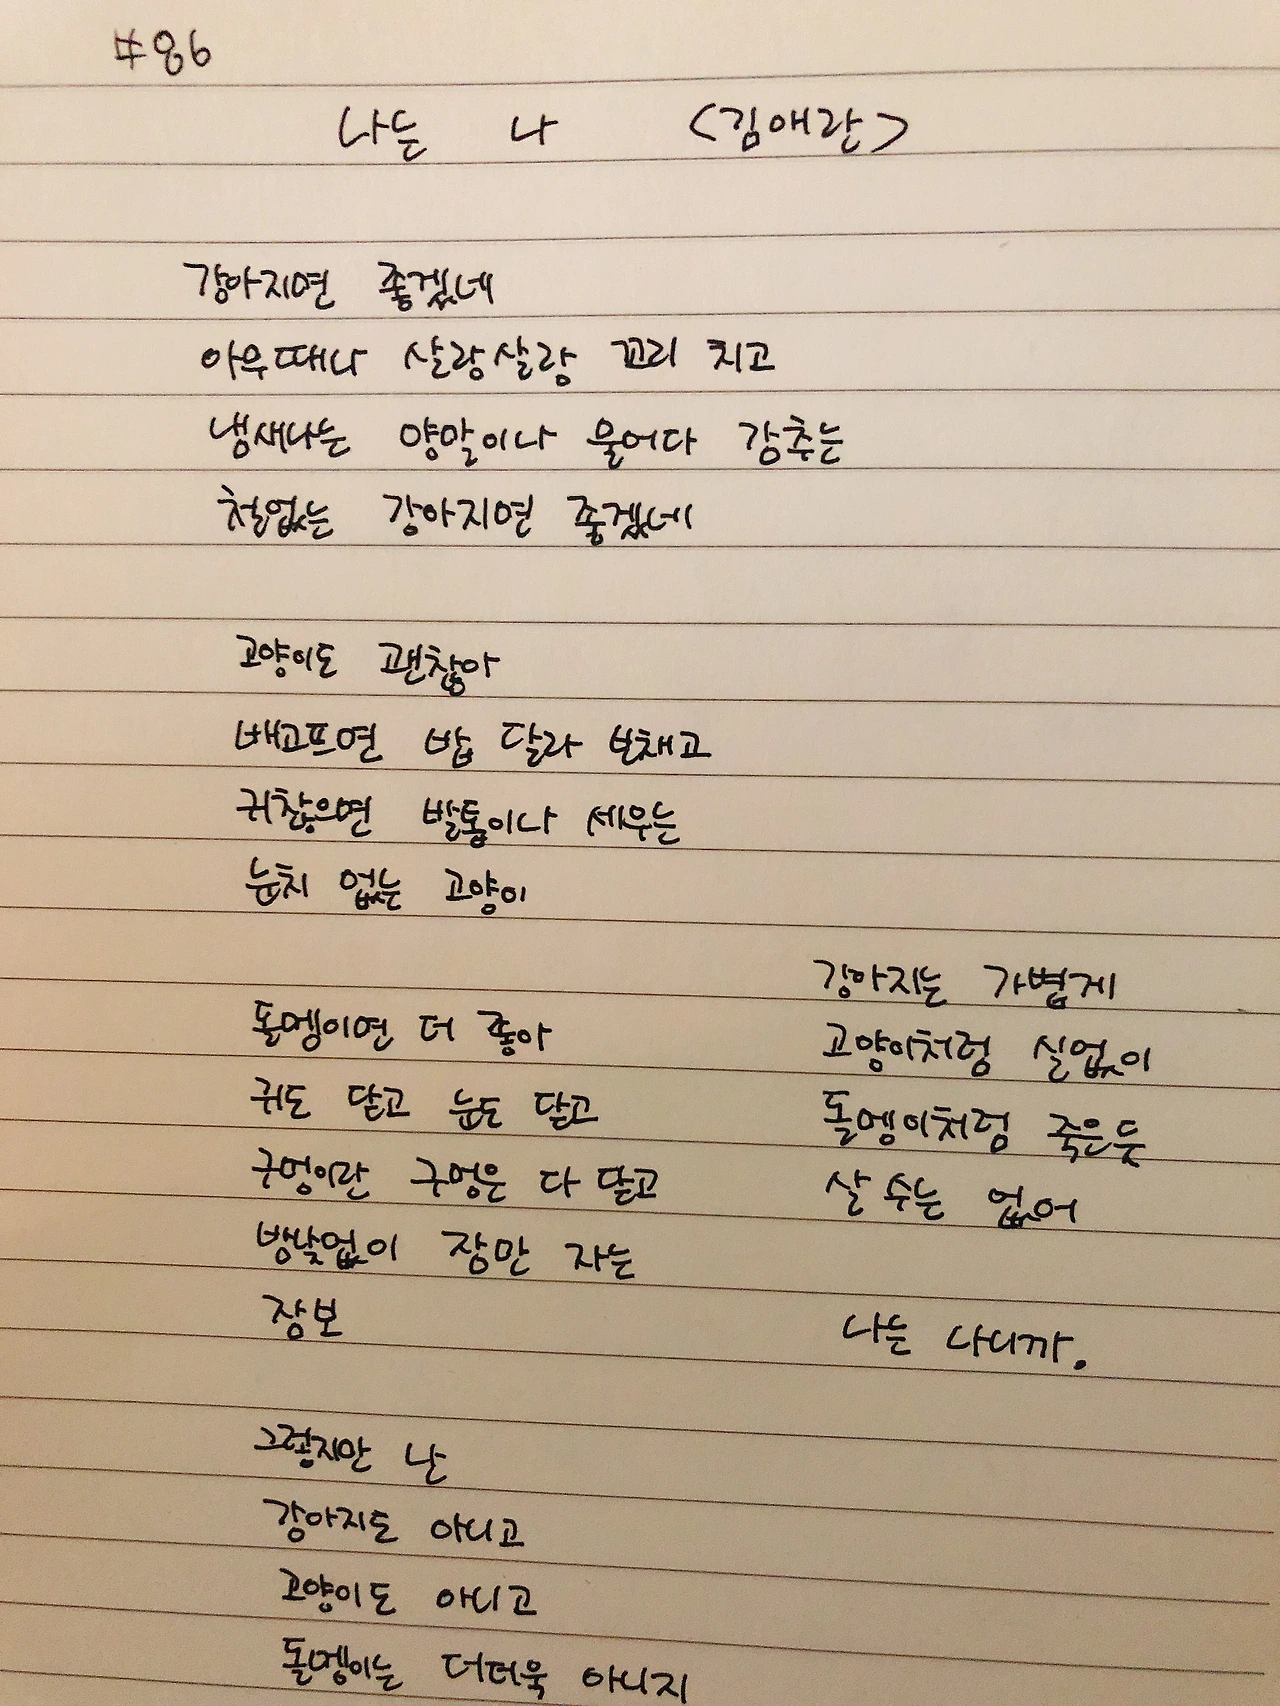 #86
나는 나 <김애란>
강아지면 좋겠네
아무때나 살랑살랑 꼬리 치고
냄새나는 양말이나 물어다 감추는
철없는 강아지면 좋겠네
고양이도 괜찮아
배고프면 밥 달라 보채고
귀찮으면 발톱이나 세우는
눈치 없는 고양이
돌멩이면 더 좋아
귀도 닫고 눈도 닫고
구멍이란 구멍은 다 닫고
밤낮없이 잠만 자는
잠보
그렇지만 난
강아지도 아니고
고양이도 아니고
돌멩이는 더더욱 아니지
강아지는 가볍게
고양이처럼 실없이
돌멩이처럼 죽은듯
살 수는 없어
나는 나니까.